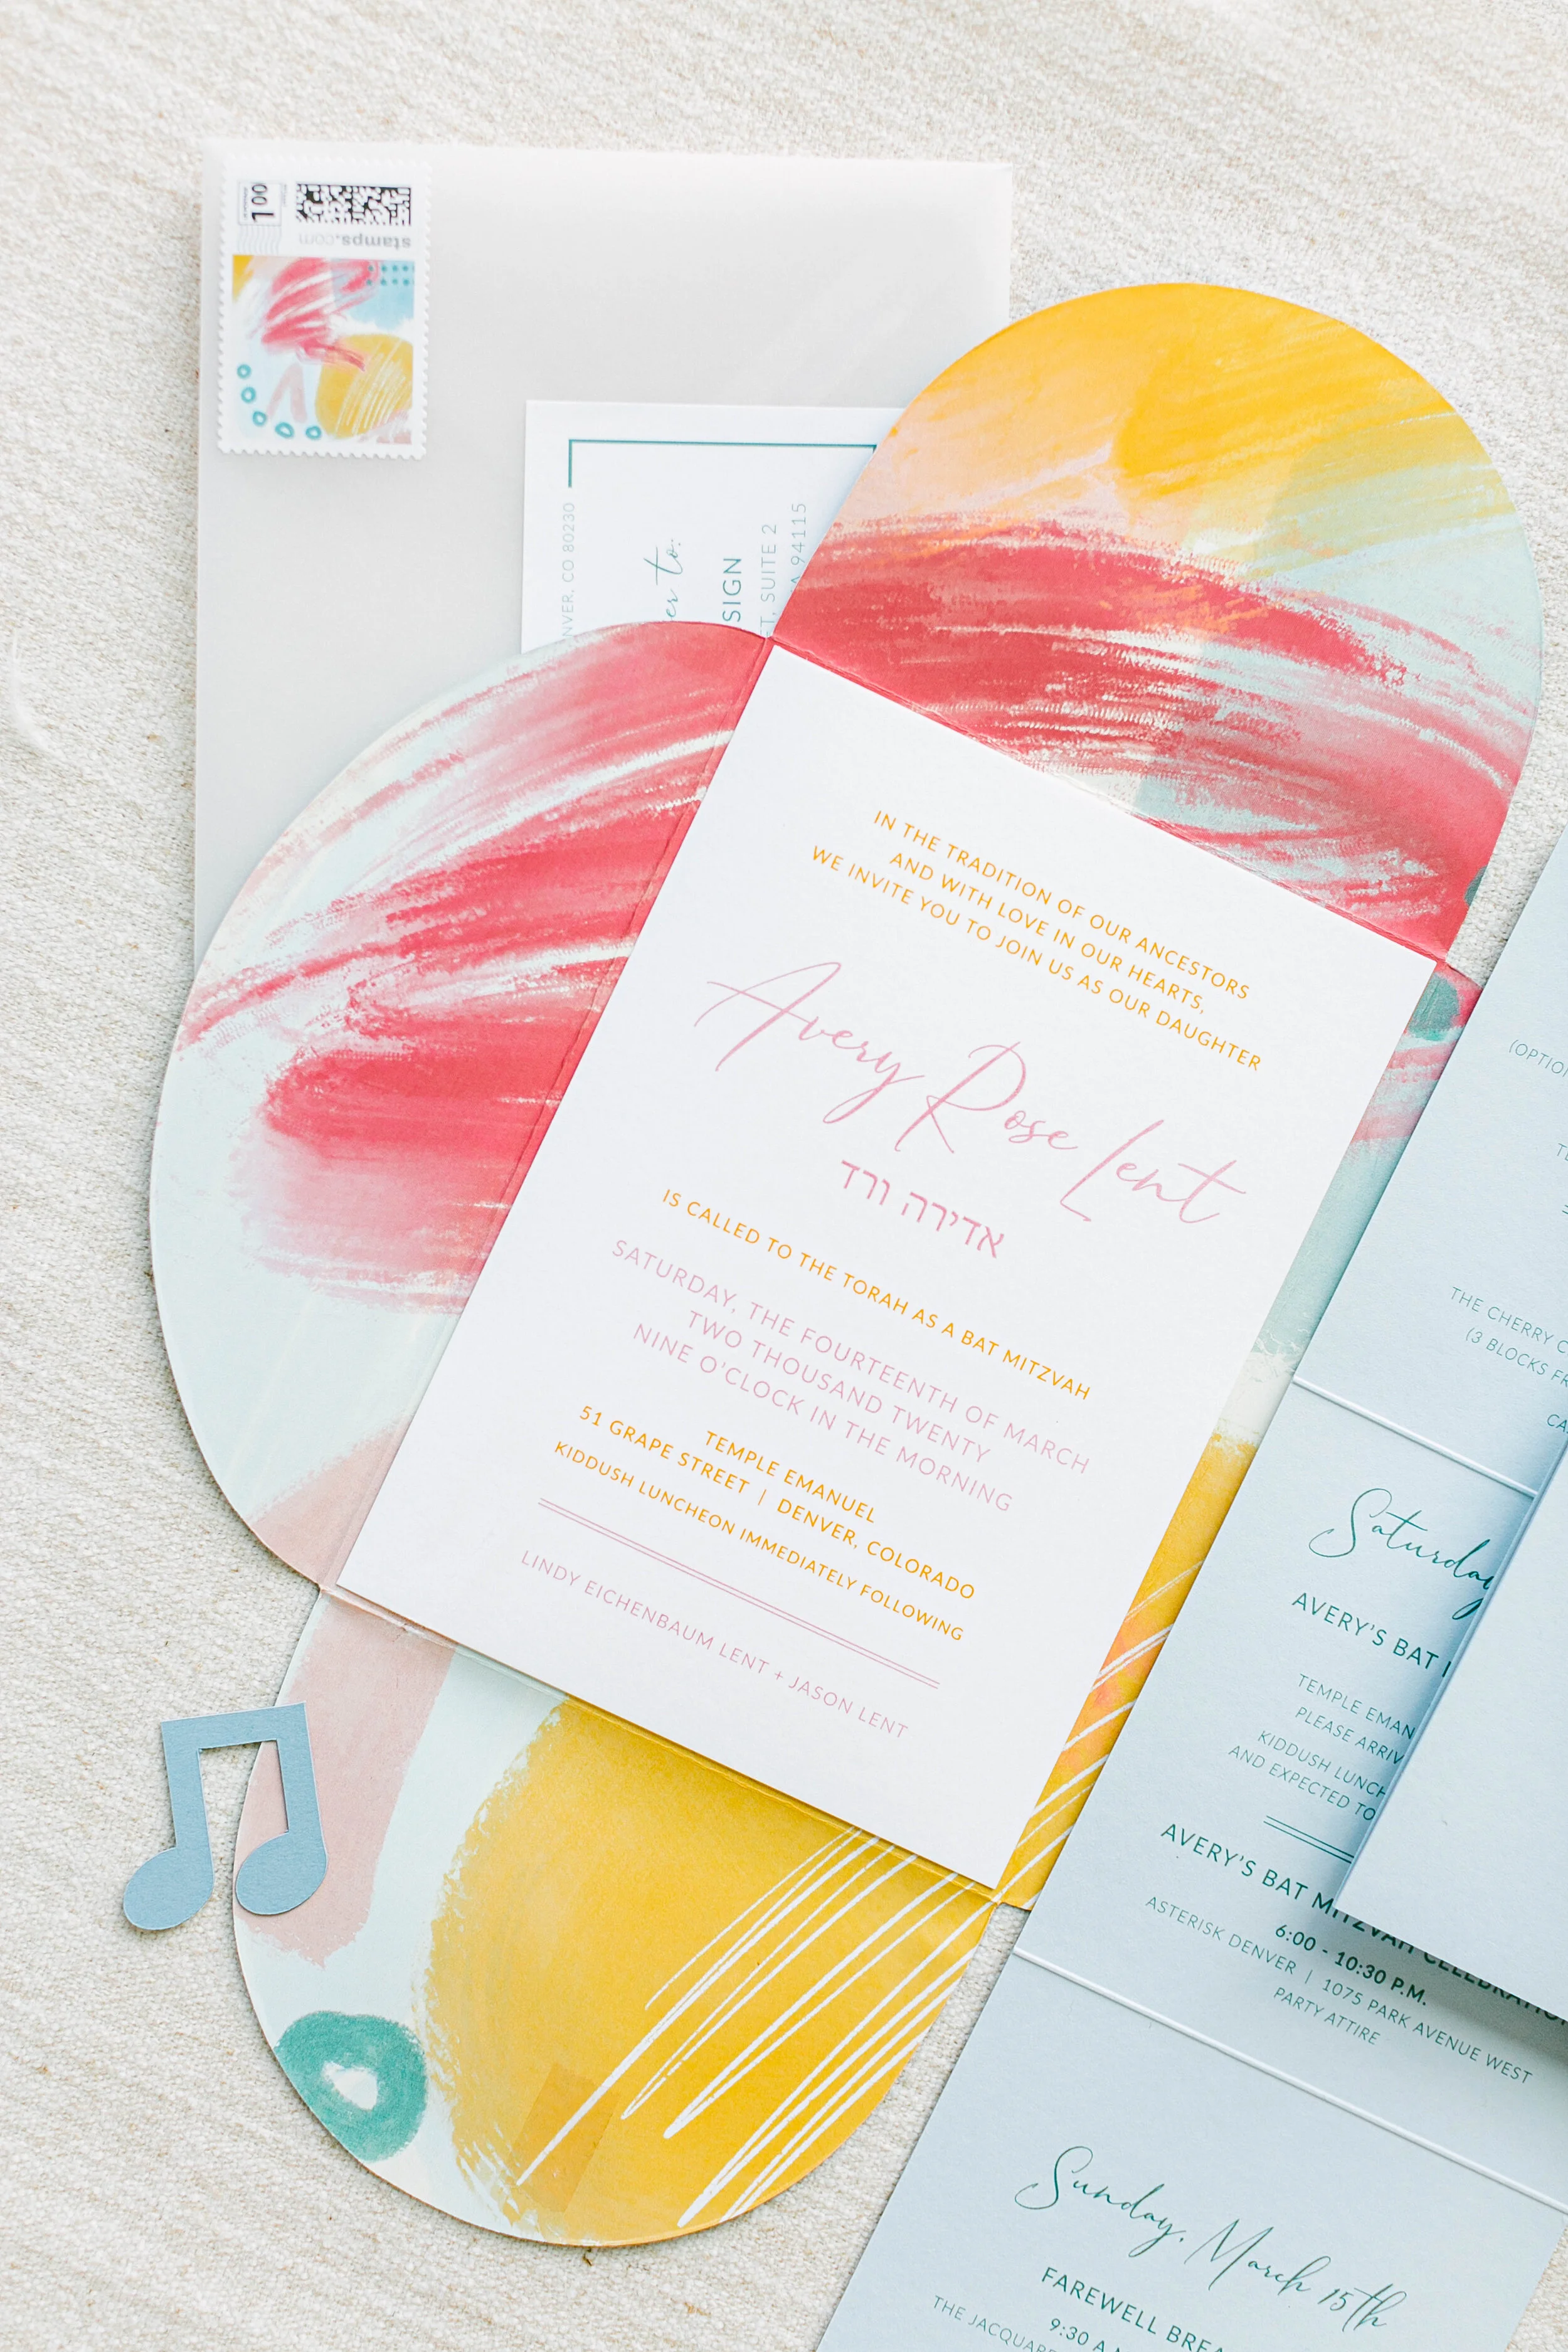 1.00
stamps.com
NVER, CO 80230
er to:
SIGN
T, SUITE 2
A 94115
IN THE TRADITION OF OUR ANCESTORS
AND WITH LOVE IN OUR HEARTS,
WE INVITE YOU TO JOIN US AS OUR DAUGHTER
Avery Rose Lent
אדירה ורד
IS CALLED TO THE TORAH AS A BAT MITZVAH
SATURDAY, THE FOURTEENTH OF MARCH
TWO THOUSAND TWENTY
NINE O'CLOCK IN THE MORNING
TEMPLE EMANUEL
51 GRAPE STREET | DENVER, COLORADO
KIDDUSH LUNCHEON IMMEDIATELY FOLLOWING
LINDY EICHENBAUM LENT + JASON LENT
(OPTIO
TE
THE CHERRY C
(3 BLOCKS FR
CA
Saturday
AVERY'S BAT
TEMPLE EMAN
PLEASE ARRIV
KIDDUSH LUNCH
AND EXPECTED TO
AVERY'S BAT MITZVAH CELEBRATION
6:00 - 10:30 P.M.
ASTERISK DENVER | 1075 PARK AVENUE WEST
PARTY ATTIRE
Sunday, March 15th
FAREWELL BREA
9:30 A.M
THE JACQUAR